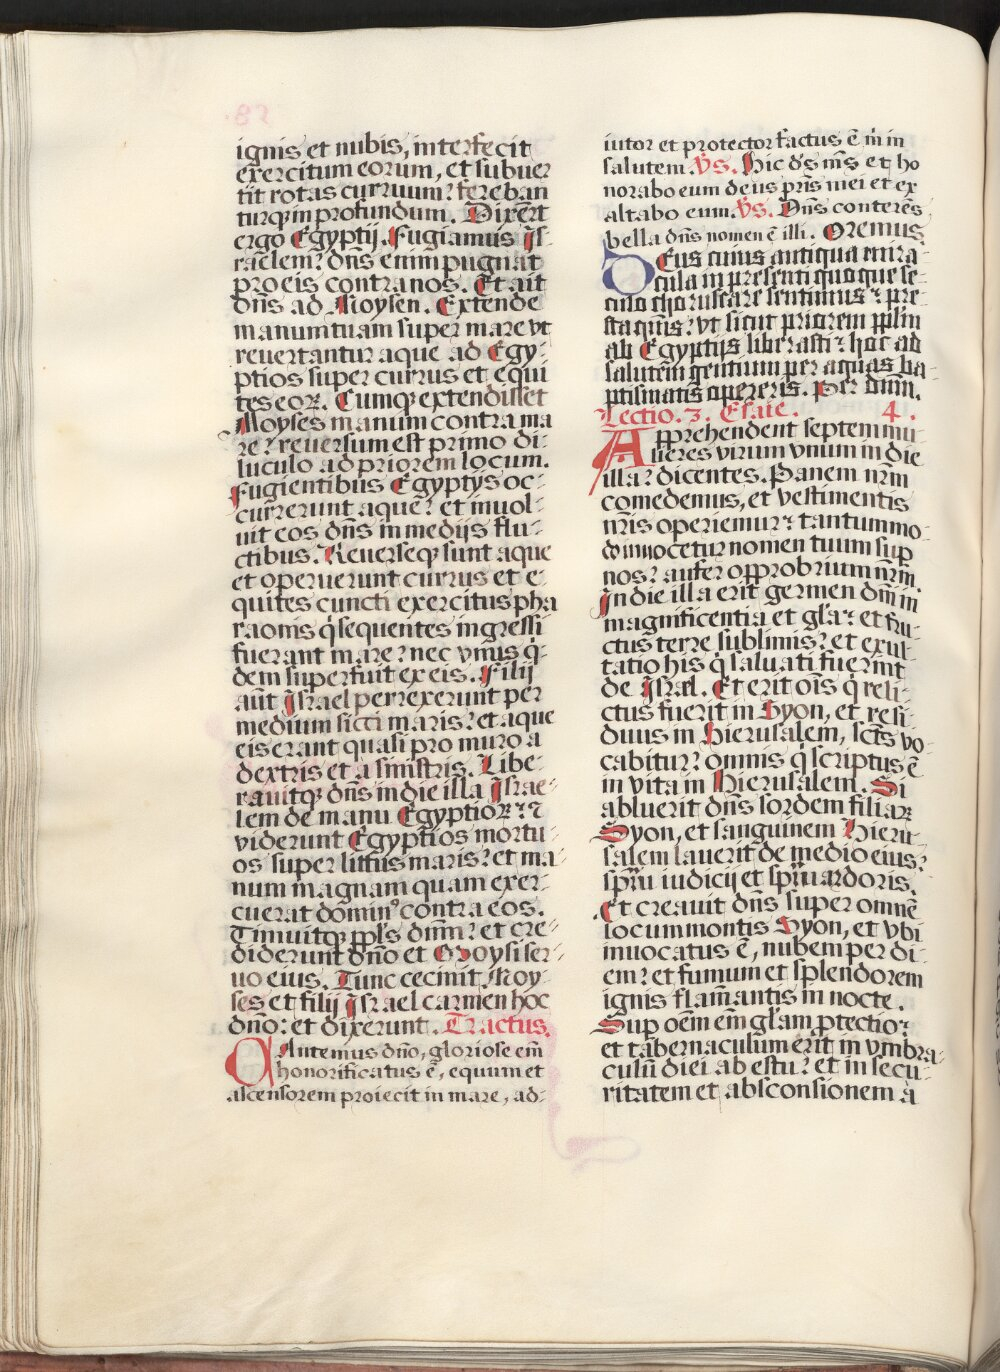 ignis et nubis, interfecit
exercitum eorum, et subuer
tit rotas curruum? fereban
turq̃ in profundum. Dixer̃t
ergo Egyptij. Fugiamus Is-
raelem? dñs enim pugnat
pro eis contra nos. Et ait
dñs ad Moysen. Extende
manum tuam super mare vt
reuertantur aque ad Egy-
ptios super currus et equi
tes eoꝝ. Cumqꝫ extendisset
Moyses manum contra ma
re? reuersum est primo di-
luculo ad priorem locum.
Fugientibus Egyptys oc-
currerunt aque? et inuol-
uit eos dñs in medijs flu-
ctibus. Reuerseqꝫ sunt aque
et operuerunt currus et e-
quites cuncti exercitus pha
raonis q̇ sequentes ingressi
fuerant mare? nec vnus q̇-
dem superfuit ex eis. Filij
aũt Israel perrexerunt per
medium sicci maris? et aque
eis erant quasi pro muro a
dextris et a sinistris. Libe-
rauitqꝫ dñs in die illa Israe-
lem de manu Egyptioꝝ? ⁊
viderunt Egyptios mortu-
os super littus maris? et ma-
num magnam quam exer-
cuerat dominꝰ contra eos.
Timuitqꝫ ppl̃s dñm? et cre-
diderunt dño et Moysi ser-
uo eius. Tunc cecinit Moy-
ses et filij Israel carmen hoc
dño: et dixerunt. Tractus.
CAntemus dño, gloriose em̃
honorificatus ẽ, equum et
ascensorem proiecit in mare, ad-
iutor et protector factus ẽ m̃ in
salutem. V̄s. Hic d̃s m̃s et ho
norabo eum deus pr̃is mei et ex
altabo eum. V̄s. Dñs conterẽs
bella dñs nomen ẽ illi. Oremus.
DEus cuius antiqua mira-
cula in presenti quoque se-
culo choruscare sentimus ⁊ pre-
sta q̃us? vt sicut priorem pplm̃
ab Egyptijs liberasti ⁊ hoc ad
salutem gentium per aquas ba-
ptismatis opereris. Per dñm.
Lectio. 3. Esaie. 4.
APprehendent septem mu-
lieres virum vnum in die
illa? dicentes. Panem nr̃m
comedemus, et vestimentis
nr̃is operiemur? tantummo-
do inuocetur nomen tuum sup̃
nos? aufer opprobrium nr̃m.
In die illa erit germen dñi in
magnificentia et gl̃a? et fru-
ctus terre sublimis? et exul-
tatio his q̇ saluati fuerint
de Isral. Et erit oĩs q̇ reli-
ctus fuerit in Syon, et resi-
duus in Hierusalem, sc̃ts vo-
cabitur? omnis q̇ scriptus ẽ
in vita in Hierusalem. Si
abluerit dñs sordem filiaꝝ
Syon, et sanguinem Hieru-
salem lauerit de medio eius?
spũ iudicij et spũ ardoris.
Et creauit dñs super omnẽ
locum montis Syon, et vbi
inuocatus ẽ, nubem per di-
em? et fumum et splendorem
ignis flam̃antis in nocte.
Sup̃ oẽm em̃ gl̃am ꝓtectio?
et tabernaculum erit in vmbra-
culũ diei ab estu? et in secu-
ritatem et absconsionem à